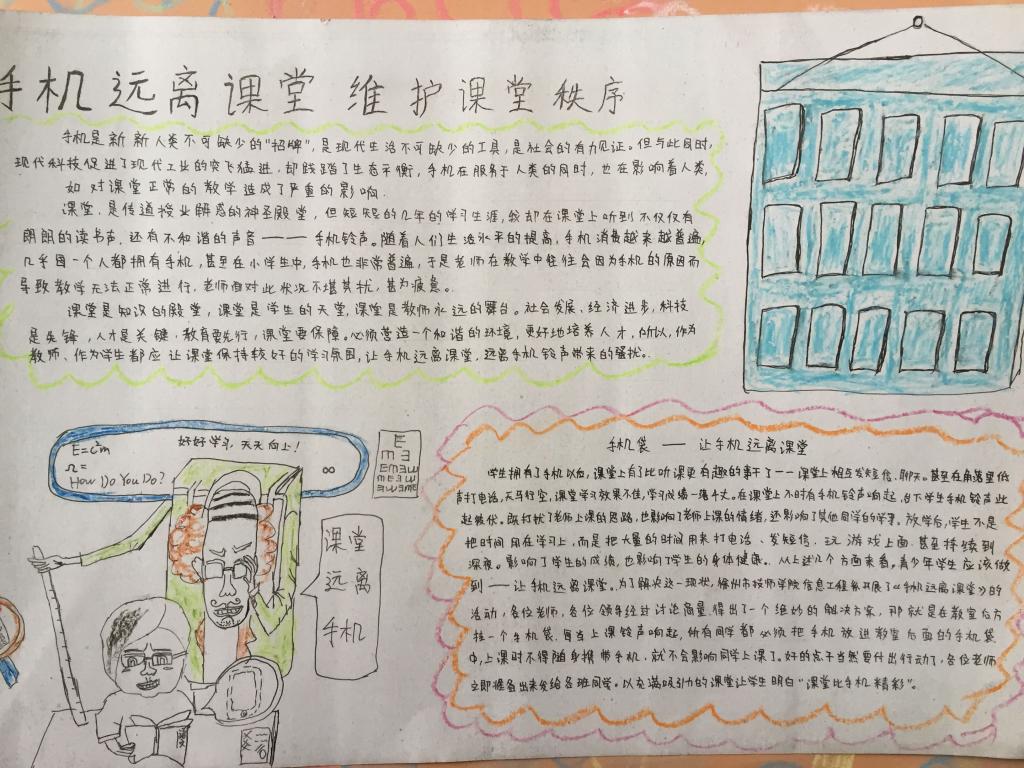 手机远离课堂 维护课堂秩序
手机是新新人类不可缺少的"招牌",是现代生活不可缺少的工具,是社会的有力见证。但与此同时,
现代科技促进了现代工业的突飞猛进,却践踏了生态平衡,手机在服务于人类的同时,也在影响着人类,
如对课堂正常的教学造成了严重的影响.
课堂,是传道授业解惑的神圣殿堂,但短短的几年的学习生涯,我却在课堂上听到不仅仅有
朗朗的读书声,还有不和谐的声音———手机铃声。随着人们生活水平的提高,手机消费越来越普遍,
几乎每一个人都拥有手机,甚至在小学生中,手机也非常普遍,于是老师在教学中往往会因为手机的原因而
导致教学无法正常进行,老师面对此状况不堪其扰,甚为疲惫。
课堂是知识的殿堂,课堂是学生的天堂,课堂是教师永远的舞台。社会发展、经济进步,科技
是先锋,人才是关键,教育要先行,课堂要保障。必须营造一个和谐的环境,更好地培养人才,所以,作为
教师、作为学生都应让课堂保持较好的学习氛围,让手机远离课堂,远离手机铃声带来的骚扰。
E=c²m
好好学习,天天向上!
Ω=
∞
How Do You Do?
E
m ∃
E m ∃ W
课堂
远离
手机
手机袋——让手机远离课堂
学生拥有了手机以后,课堂上有了比听课更有趣的事干了——课堂上相互发短信、聊天。甚至在角落里低
声打电话,天马行空,课堂学习效果不佳,学习成绩一落千丈。在课堂上不时有手机铃声响起,台下学生手机铃声此
起彼伏。既打扰了老师上课的思路,也影响了老师上课的情绪,还影响了其他同学的学习。放学后,学生不是
把时间用在学习上,而是把大量的时间用来打电话、发短信、玩游戏上面.甚至持续到
深夜。影响了学生的成绩,也影响了学生的身体健康.从上述几个方面来看,青少年学生应该做
到——让手机远离课堂。为了解决这一现状,柳州市技师学院信息工程系开展了《手机远离课堂》的
活动,各位老师,各位领导经过讨论商量得出了一个绝妙的解决方案,那就是在教室后方
挂一个手机袋.每当上课铃声响起,所有同学都必须把手机放进教室后面的手机袋
中,上课时不得随身携带手机.就不会影响同学上课了。好的点子当然要付出行动了,各位老师
立即准备出来发给各班同学。以充满吸引力的课堂让学生明白"课堂比手机精彩"。